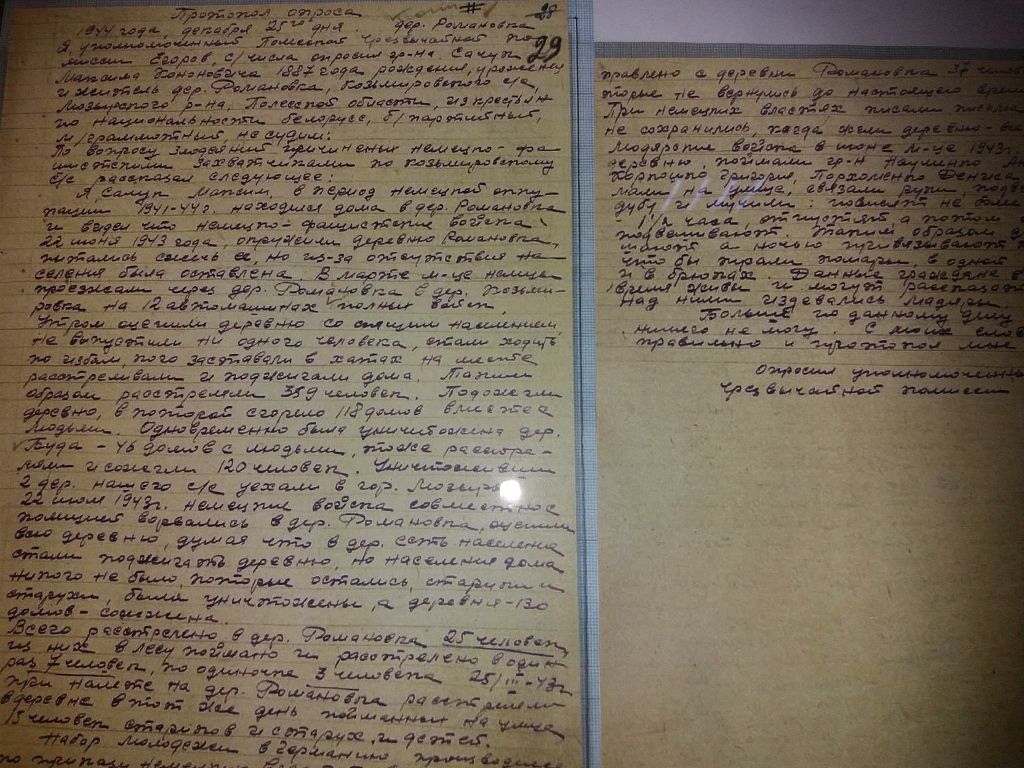 Протокол опроса
28
29
1944 года, декабря 25го дня. дер. Романовка
Я, уполномоченный Полесской Чрезвычайной ко
миссии Егоров, с/числа опросил гр-на Сачук
Максима Кононовича 1887 года рождения, уроженец
и житель дер. Романовка, Козьмировского с/с,
Мозырского р-на, Полесской области, из крестьян
по национальности белорусс, б/партийный,
м/грамотный, не судим:
По вопросу злодеяний причиненых немецко-фа
шистскими захватчиками по козьмировскому
с/с рассказал следующее:
Я, Сачук Максим, в период немецкой окку-
пации 1941-44г. находился дома в дер. Романовка
и видел что немецко-фашистские войска
22 июня 1943 года, окружили деревню Романовка,
пытались сжечь ее, но из-за отсутствия на
селения была оставлена. В марте м-це немцы
проезжали через дер. Романовка в дер. Козьми-
ровка на 12 автомашинах полных войск.
Утром оцепили деревню со спящим населением,
не выпустили ни одного человека, стали ходить
по избам, кого заставали в хатах на месте
расстреливали и поджигали дома. Таким
образом расстреляли 359 человек. Подожгли
деревню, в которой сгорело 118 домов вместе с
людьми. Одновременно была уничтожена дер.
Буда - 46 домов с людьми, тоже расстре-
ляли и сожгли 120 человек. Уничтоживши
2 дер. нашего с/с уехали в гор. Мозырь
22 июля 1943г. немецкие войска совместно с
полицией ворвались в дер. Романовка, оцепили
всю деревню, думая что в дер. есть население
стали поджигать деревню, но населения дома
никого не было, которые остались, старики и
старухи, были уничтожены, а деревня-130
домов-сожжена.
Всего расстрелено в дер. Романовка 25 человек,
из них в лесу поймано и расстрелено в один
раз 7 человек, по одиночке 3 человека 25/III-43г
при налете на дер. Романовка расстреляли
в деревне в тот же день пойманных на улице
15 человек стариков и старух и детей.
Набор молодежи в Германию производился
по приказу немецких
правлено с деревни Романовка 37 челов
торые не вернулись до настоящего врем
При немецких властях писали письма
не сохранились, когда жгли деревню
Мадярские войска в июне м-це 1943г.
деревню, поймали гр-н Науменко
Хорошко Григория, Пархоменко Дениса
мали на улице, связали руки, подве
дубу и мучили: повисят не боле
1/2 часа, отпустят а потом
подвешивают. Таким образом
мают а ночью привязывают
что бы жрали комары, в одной
и в брюках. Данные граждане в
время живы и могут рассказат
над ними издевались мадяры.
Больше по данному делу
ничего не могу. С моих слов
правильно и протокол мне
Опросил уполномоченны
Чрезвычайной комиссии